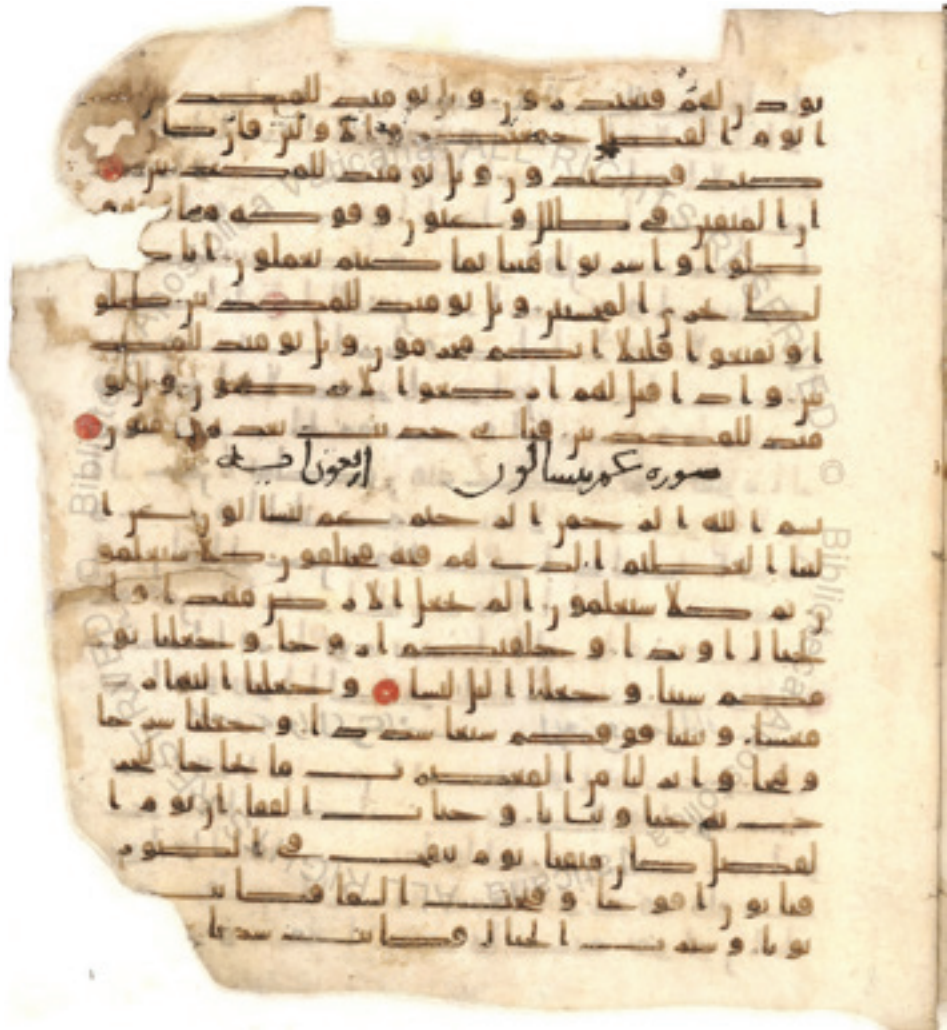 يوذن لهم فيعتذرون ويل يومئذ للمكذبين
يوم الفصل جمعنكم والاولين فان كا
كيد فكيدون ويل يومئذ للمكذبين
ان المتقين في ظلل وعيون وفوكه مما
كلوا واشربوا هنيا بما كنتم تعملون انا كذ
لك نجزي المحسنين ويل يومئذ للمكذبين كلو
ا وتمتعوا قليلا انكم مجرمون ويل يومئذ للمكذ
بين واذا قيل لهم اركعوا لا يركعون ويل يو
مئذ للمكذبين فباي حديث بعده يومنون
سوره عم يتسالون اربعون ايه
بسم الله الرحمن الرحيم عم يتسالون عن ا
لنبا العظيم الذي هم فيه مختلفون كلا سيعلمو
ن ثم كلا سيعلمون الم نجعل الارض مهدا وا
لجبال اوتدا وخلقنكم ازوجا وجعلنا نو
مكم سبتا وجعلنا اليل لباسا وجعلنا النهار
معشا وبنينا فوقكم سبعا شددا وجعلنا سرجا
وهجا وانزلنا من المعصرت ما ثجاجا لنخر
ج به حبا ونباتا وجنت الفافا ان يوم ا
لفصل كان ميقتا يوم ينفخ في الصور
فتاتون افوجا وفتحت السما فكانت ا
بوبا وسيرت الجبال فكانت سرابا